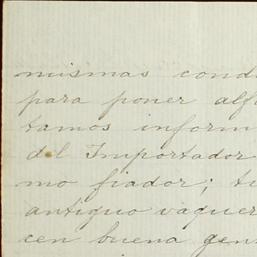 mismas cond
para poner alf
tamos inform
del Importador
mo fiador; te
antiguo vaquer
cen buena gen